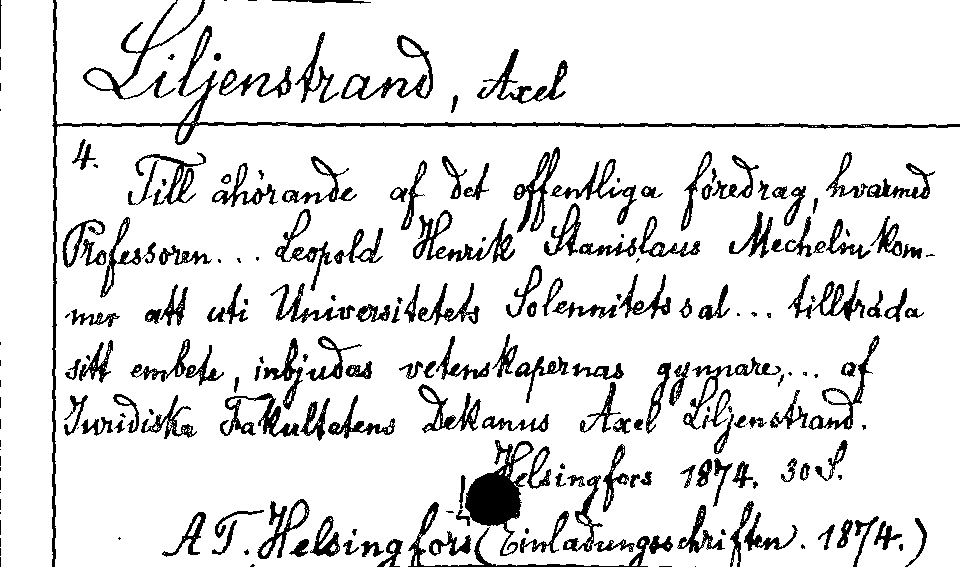 Liljenstrand, Axel
4.
Till åhörande af det offentliga föredrag, hvarmed
Professoren... Leopold Henrik Stanislaus Mechelin kom-
mer att uti Universitetets Solennitetssal... tillträda
sitt embete, inbjudas vetenskapernas gynnare,... af
Juridiska Fakultetens Dekanus Axel Liljenstrand.
Helsingfors 1874. 30 S.
AT. Helsingfors (Einladungsschriften. 1874.)